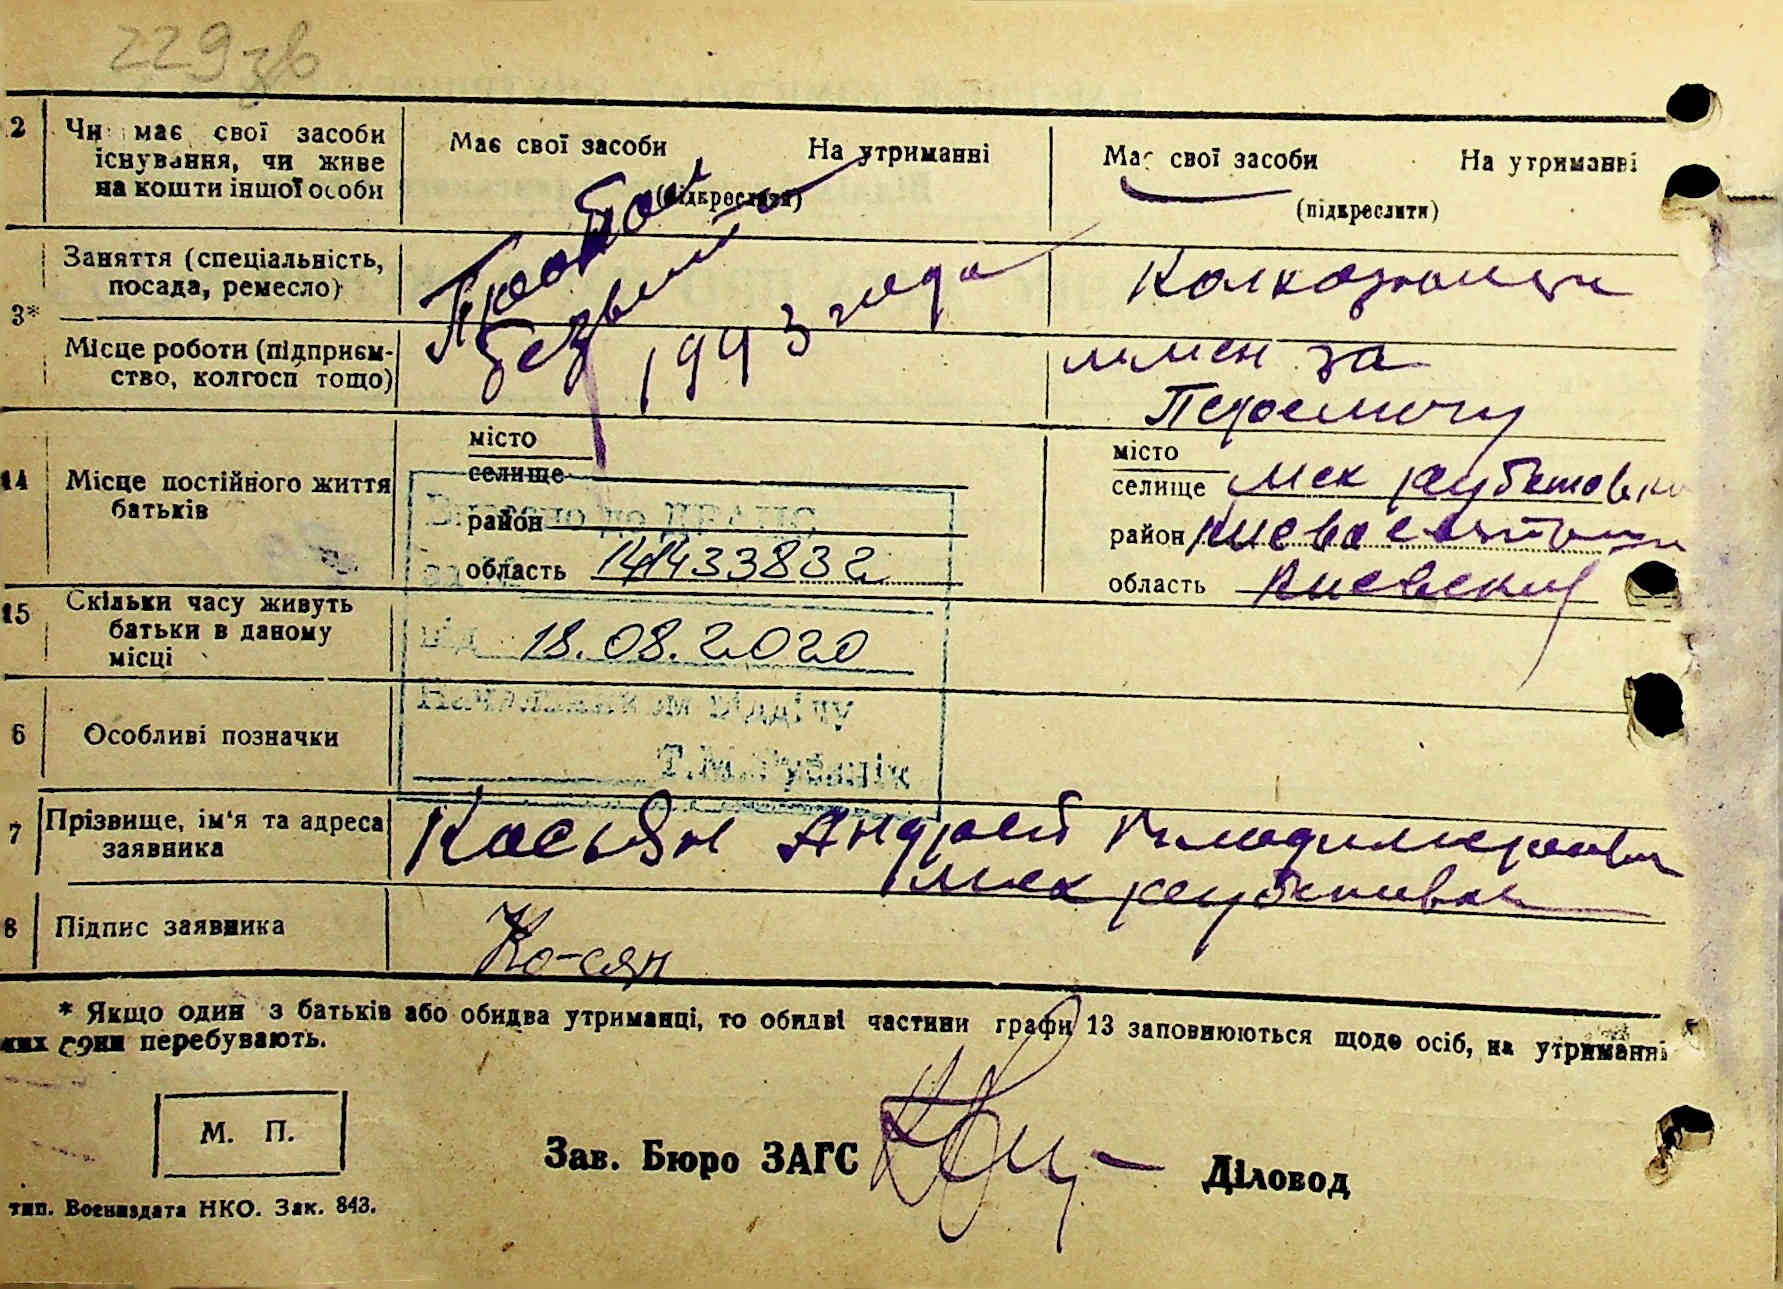 229 зв
2 Чи має свої засоби існування, чи живе на кошти іншої особи
Має свої засоби На утриманні
(підкреслити)
Має свої засоби На утриманні
(підкреслити)
Пропал
безвісти
1943 года
3* Заняття (спеціальність, посада, ремесло)
Колхозница
Місце роботи (підприєм-
ство, колгосп тощо)
імен за
Перемогу
14 Місце постійного життя батьків
місто
селище
район
область 14433832
місто
селище
район
область Киевский
15 Скільки часу живуть батьки в даному місці
від 18.08.2020
6 Особливі позначки
Начальником відділу
Т.М.
7 Прізвище, ім'я та адреса заявника
Косьян Андрей Владимирович
8 Підпис заявника
Ко-сян
* Якщо один з батьків або обидва утриманці, то обидві частини графи 13 заповнюються щодо осіб, на утриманні
яких вони перебувають.
М. П.
Зав. Бюро ЗАГС
Діловод
тип. Воениздата НКО. Зак. 843.